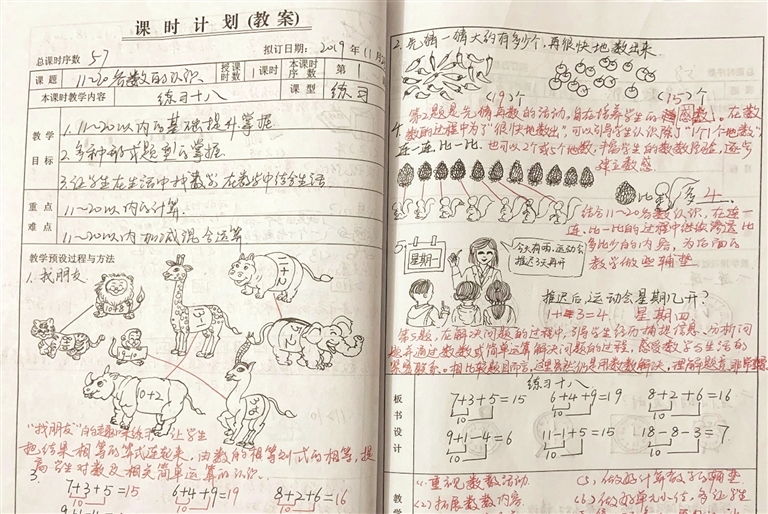 课时计划(教案)
总课时序数 57 拟订日期: 2019年11月2
课题 11~20各数的认识 授课时数 1课时 本课时序数 第1
本课时教学内容 练习十八 课型 练习
教学目标
1.11~20以内的基础提升掌握.
2.多种形式题型的掌握.
3.让学生在生活中找数学,在数学中结合生活
重点 11~20以内的计算.
难点 11~20以内加减混合运算
教学预设过程与方法
1.找朋友
10+8
11+2
9-10
10+2
"找朋友"的趣味练习, 让学生
把结果相等的算式连起来. 由数的相等到式的相等, 提
高学生对数及相关简单运算的认识.
3.
7+3+5=15 6+4+9=19 8+2+6=16
10 10 10
2.先猜一猜大约有多少个,再很快地数出来.
(19)个 (15)个
第2题是先猜再数的活动, 旨在培养学生的数感. 在数
数的过程中为了"很快地数出", 可以引导学生认识除了"1个1个地数",
4.
连一连,比一比. 也可以2个或5个地数, 丰富学生的数数经验, 逐步
建立数感.
比 多 4.
结合11~20各数认识, 在连一
连、比一比的过程中继续渗透比
多比少的内容, 为后面的
教学做些铺垫
5.
星期一
今天有雨,运动会推迟3天再开
推迟后,运动会星期几开?
1+3=4 星期四.
第5题, 在解决问题的过程中, 引导学生经历捕捉信息、分析问
题并通过数数或简单运算解决问题的过程, 感受数学与生活的
紧密联系.
练习十八
板书设计
7+3+5=15 6+4+9=19 8+2+6=16
10 10 10
9+1-4=6 11-1+5=15 18-8-3=7
10 10 10
教
(1)重视数数活动. (5)做好计算教学的铺垫
(2)拓展数数内容. (6)做好单元小结,